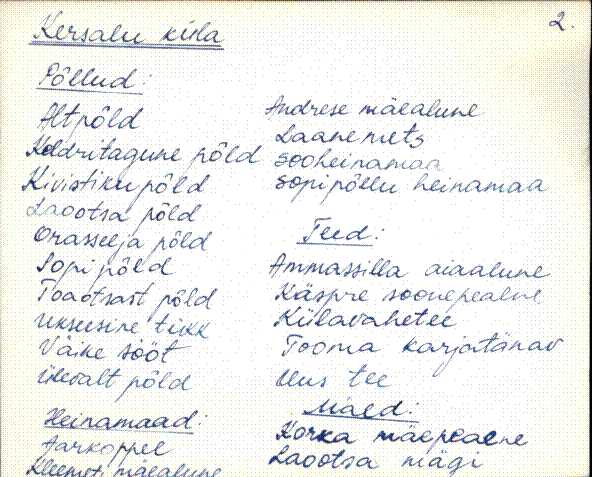 2.
Kersalu küla
Põllud:
Altpõld
Keldritagune põld
Kivistiku põld
Laootsa põld
Orasselja põld
Sopi põld
Toaotsast põld
Ukseesine tükk
Väike sööt
Ülevalt põld
Heinamaad:
Aarkoppel
Kleemeti mäealune
Andrese mäealune
Laanemets
Sooheinamaa
Sopipõllu heinamaa
Teed:
Ammassilla aiaalune
Käspre soonepealne
Külavahetee
Tooma karjatänav
Uus tee
Mäed:
Korka mäepealne
Laootsa mägi